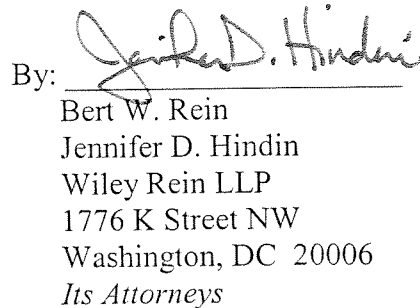 By: Jennifer D. Hindin
Bert W. Rein
Jennifer D. Hindin
Wiley Rein LLP
1776 K Street NW
Washington, DC 20006
Its Attorneys